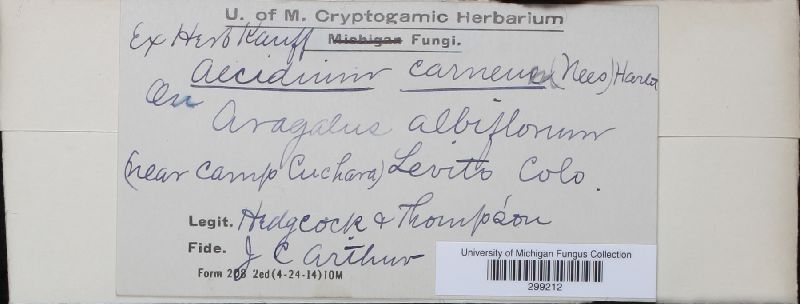 U. of M. Cryptogamic Herbarium
Ex Herb Kauff Michigan Fungi.
Aecidium carneum (Nees) Hariot
On Aragalus albiflorum
(near Camp Cuchara) Levito Colo.
Legit. Hedgcock & Thompson
Fide. J C Arthur
Form 208 2ed (4-24-14) 10M
University of Michigan Fungus Collection
299212